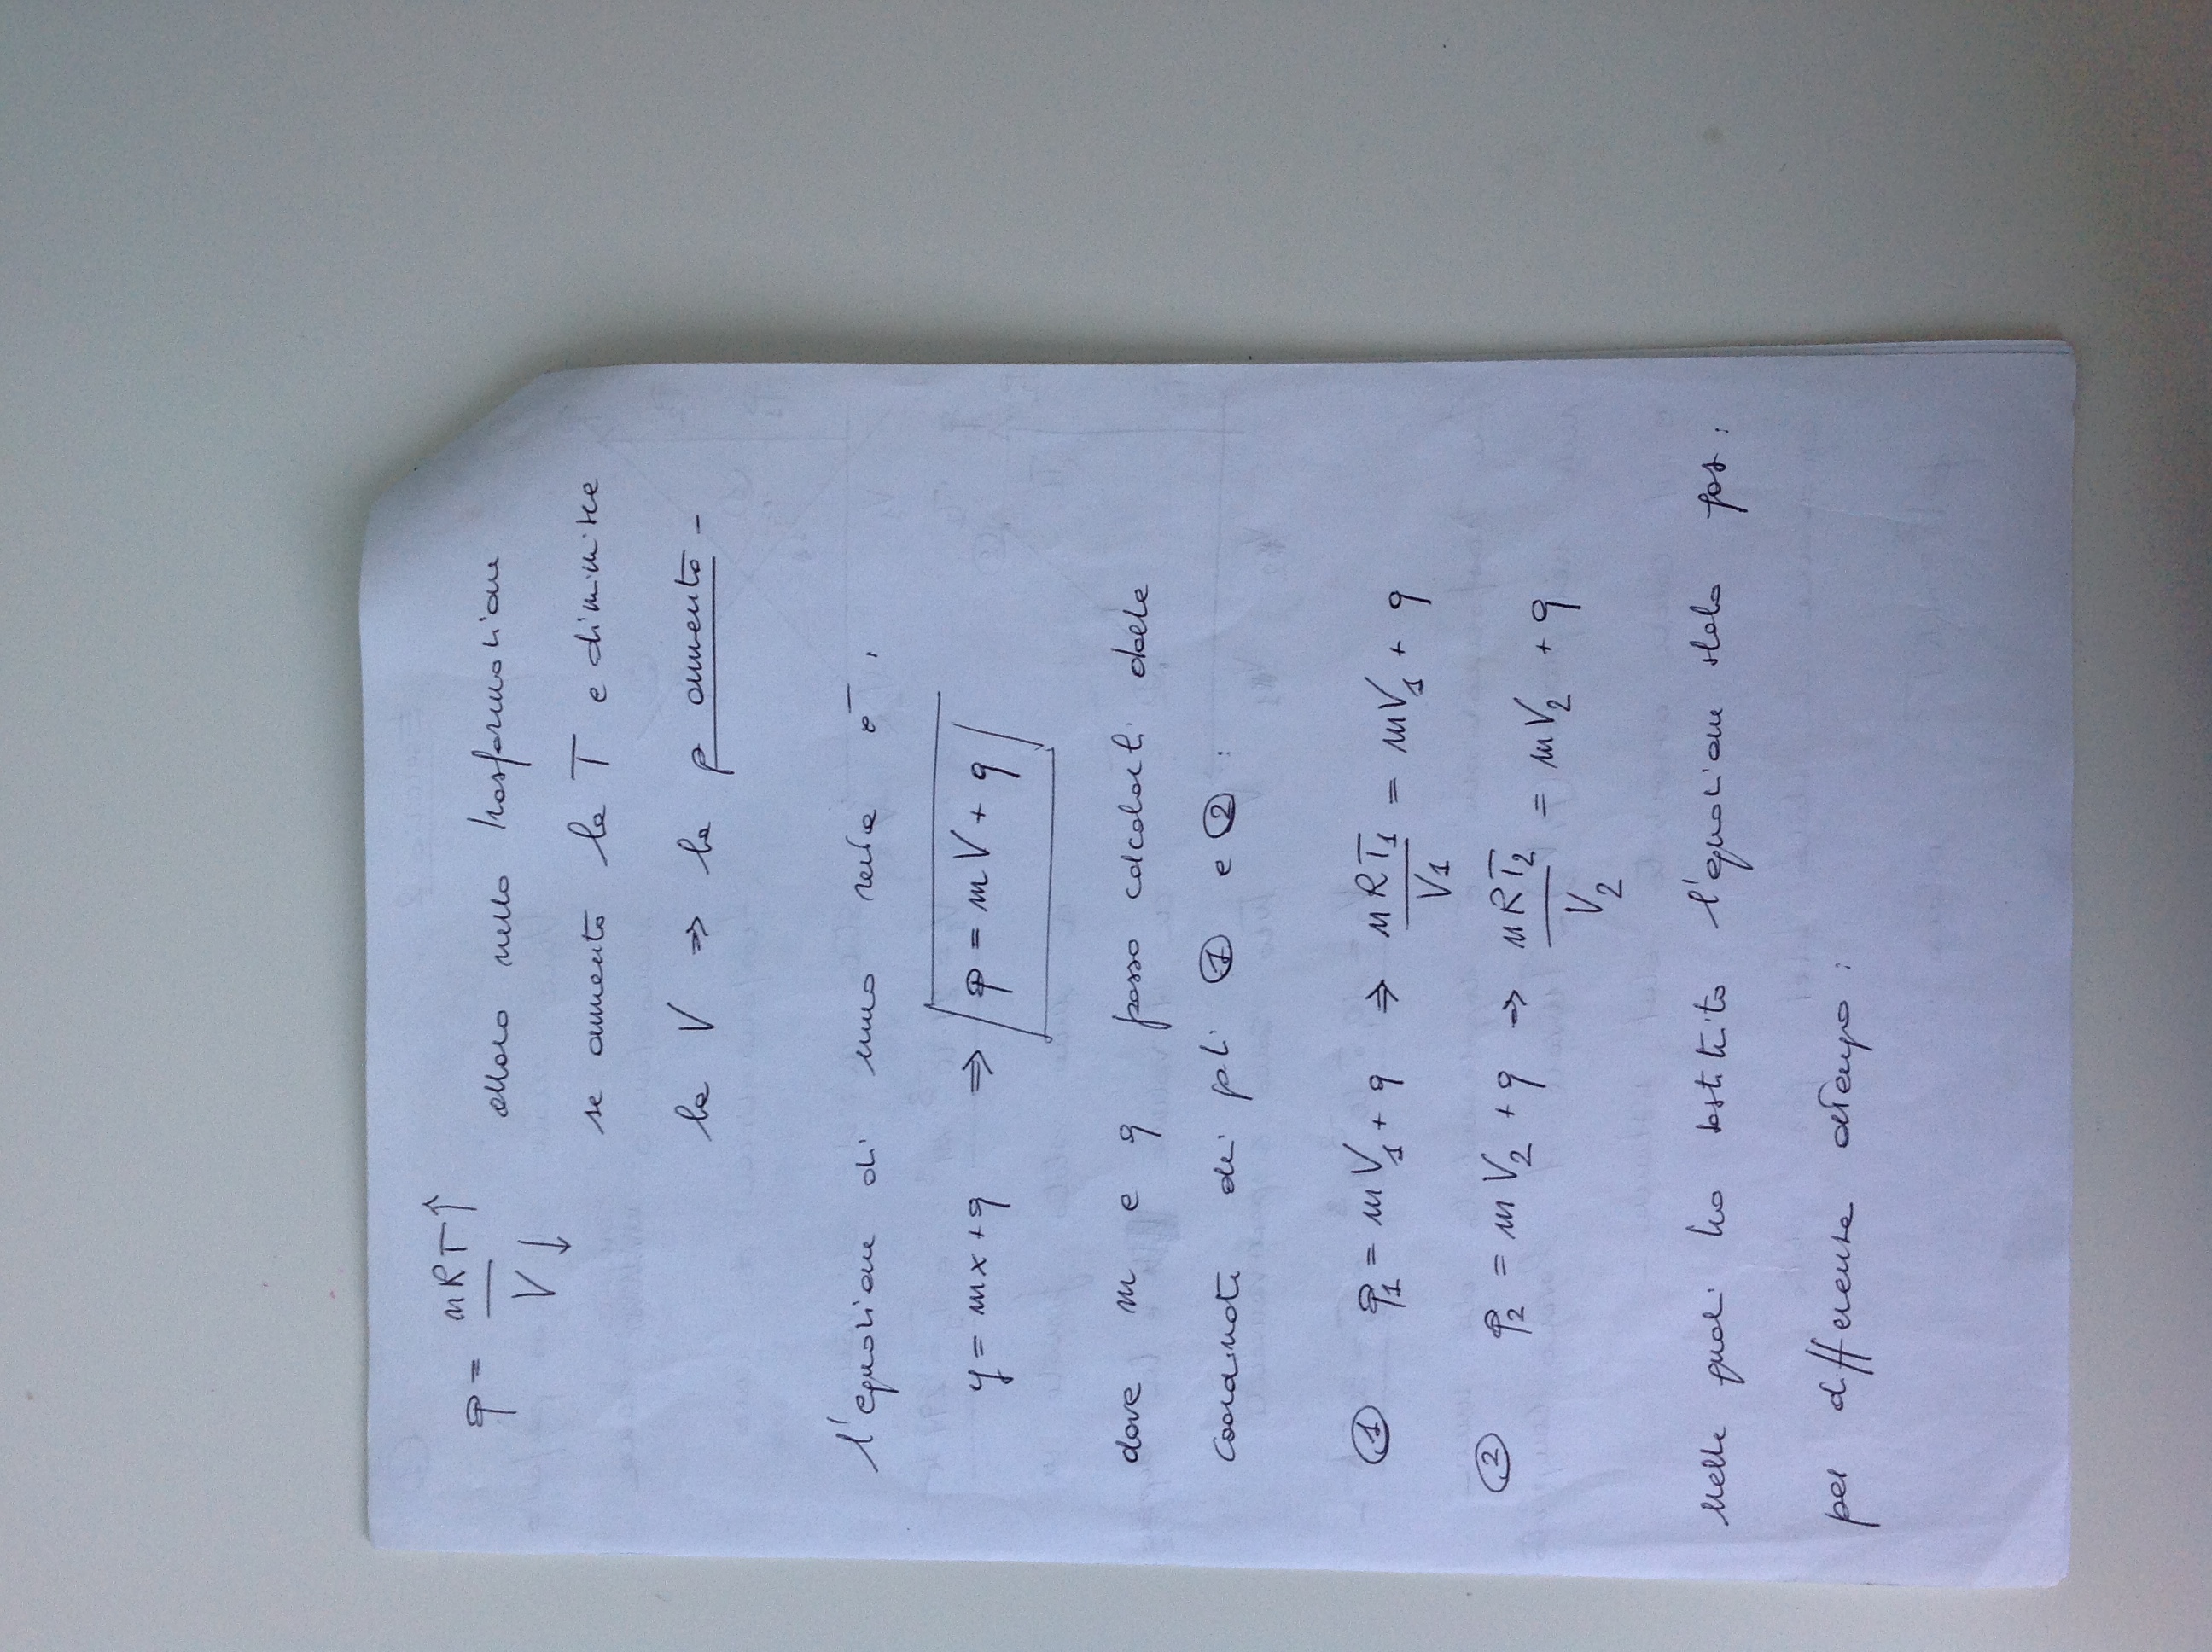 p = nRT↑ / V↓ allora nella trasformazione
se aumenta la T e diminuisce
la V ⇒ la p aumenta -
l'equazione di una retta è:
y = mx + q ⇒ p = mV + q
dove m e q posso calcolarli dalle
coordinate dei pti ① e ② :
① p₁ = mV₁ + q ⇒ nRT₁ / V₁ = mV₁ + q
② p₂ = mV₂ + q ⇒ nRT₂ / V₂ = mV₂ + q
nelle quali ho sostituito l'equazione stato gas :
per differenza ottengo :